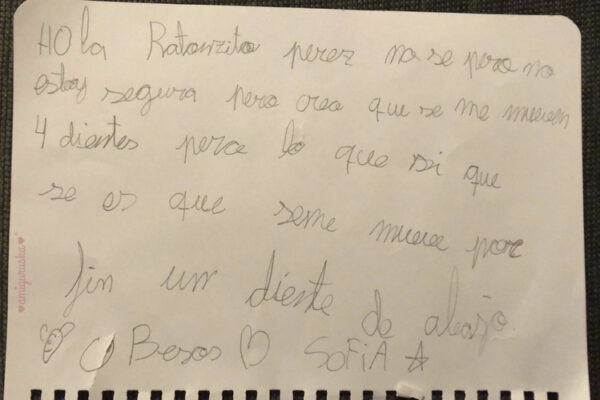 HOla Ratonzito perez no se pero no
estoy segura pero creo que se me mueven
4 dientes pero lo que si que
se es que seme mueve por
fin un diente de abajo.
Besos SOFiA
amigurusha